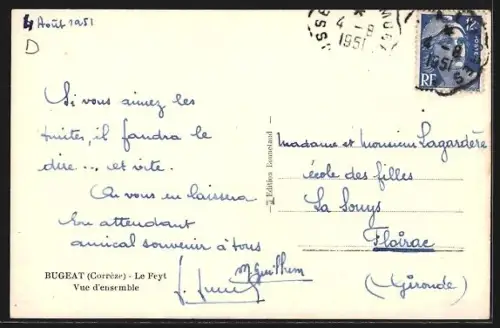 4 Août 1951
D
Si vous aimez les
truites, il faudra le
dire... et vite.
On vous en laissera
En attendant
amical souvenir à tous
M. Guilhem
BUGEAT (Corrèze) - Le Feyt
Vue d'ensemble
Edition Bessetaud
4 - 8
1951
12
4 - 8
1951
RF
Madame et Monsieur Lagardère
école des filles
La Souys
Floirac
(Gironde)